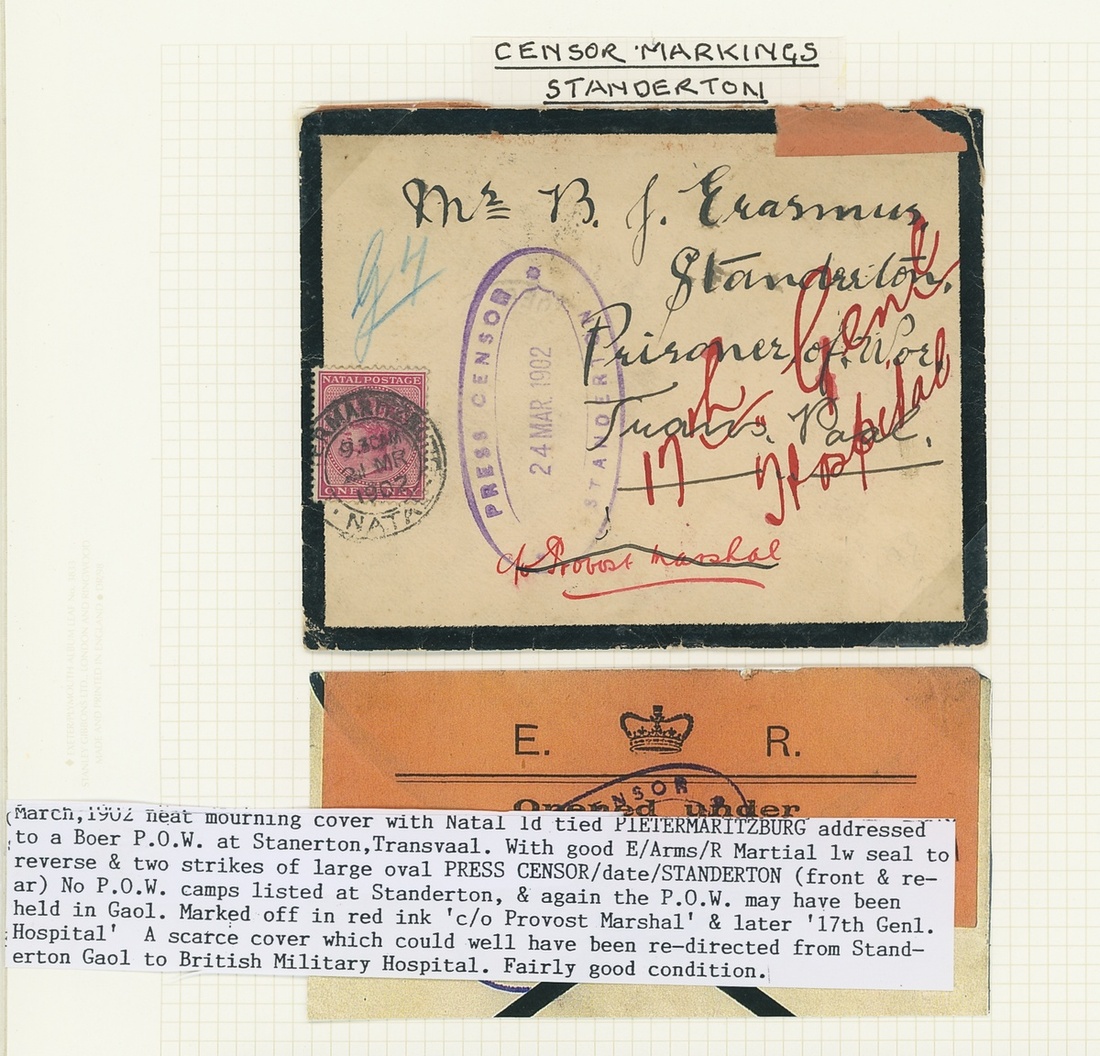 CENSOR MARKINGS
STANDERTON
Mr B. J. Erasmus,
Standerton,
Prisoner of War,
Trans. Vaal.
17th Genl
Hospital
c/o Provost Marshal
PRESS CENSOR
24 MAR 1902
STANDERTON
NATAL POSTAGE
ONE PENNY
9.30AM
21 MR
1902
NATAL
E. R.
CENSOR
Opened under
March,1902 neat mourning cover with Natal 1d tied PIETERMARITZBURG addressed
to a Boer P.O.W. at Stanerton,Transvaal. With good E/Arms/R Martial lw seal to
reverse & two strikes of large oval PRESS CENSOR/date/STANDERTON (front & re-
ar) No P.O.W. camps listed at Standerton, & again the P.O.W. may have been
held in Gaol. Marked off in red ink 'c/o Provost Marshal' & later '17th Genl.
Hospital' A scarce cover which could well have been re-directed from Stand-
erton Gaol to British Military Hospital. Fairly good condition.